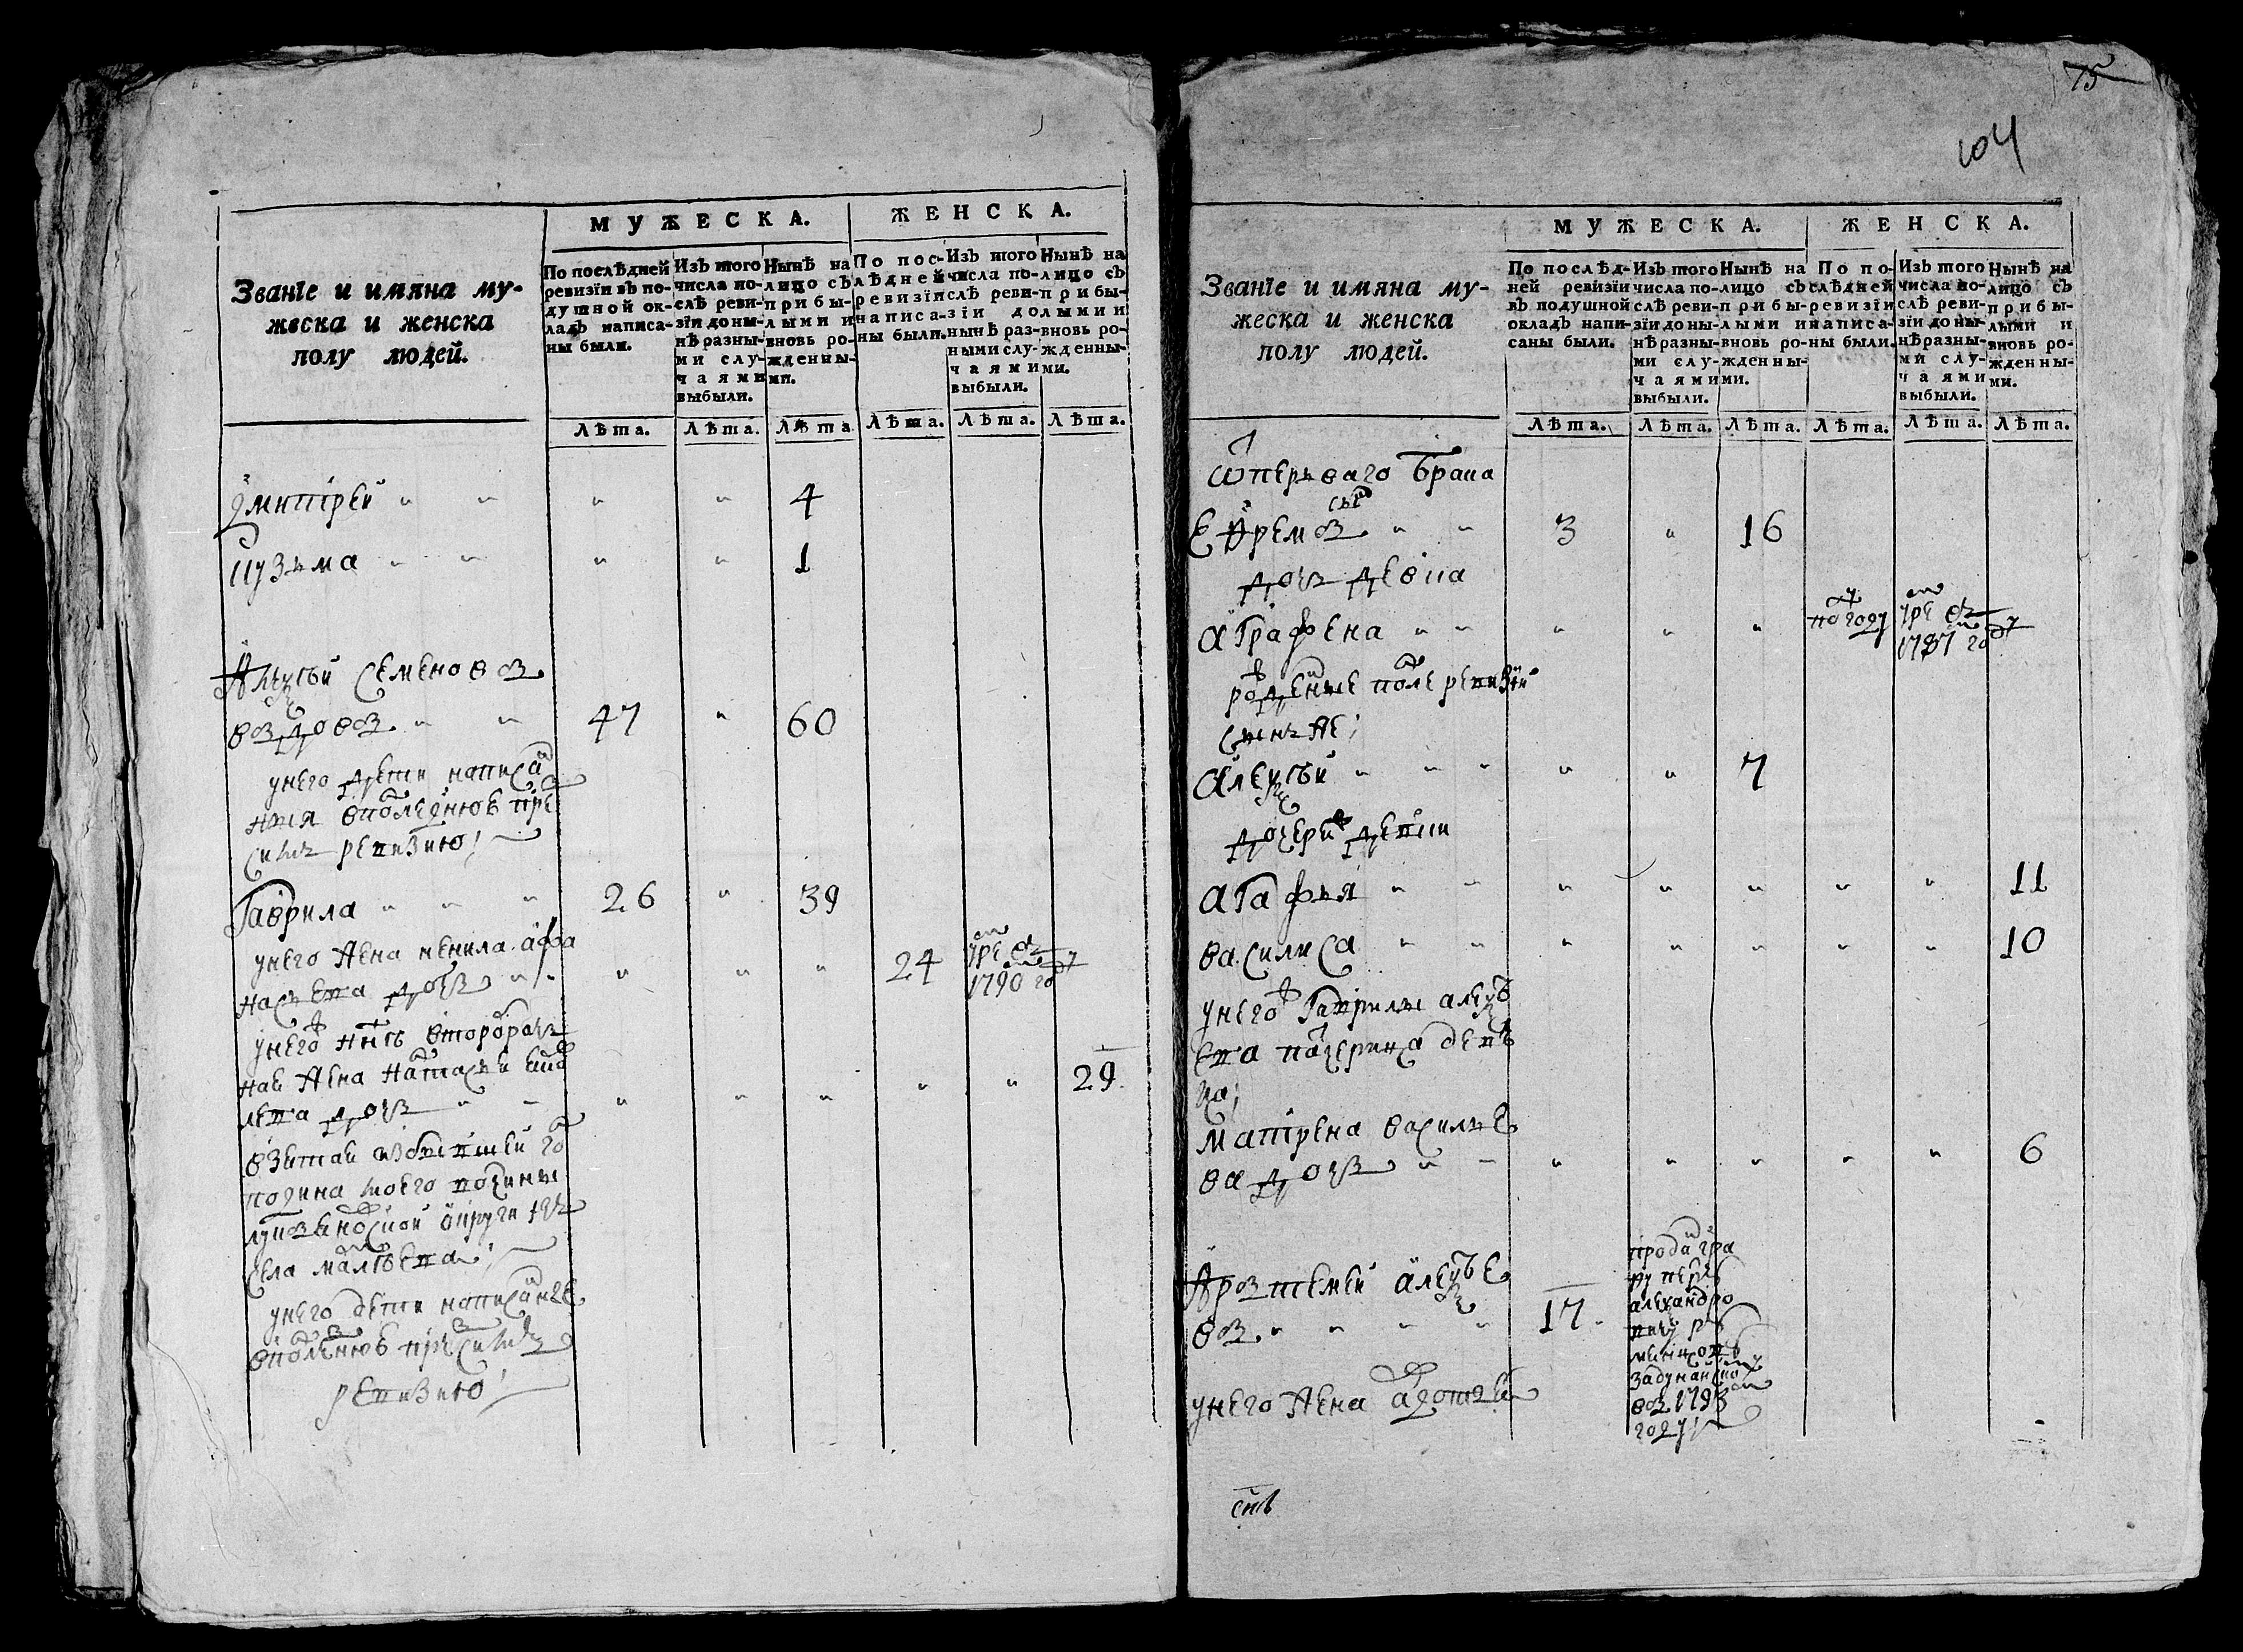 МУЖЕСКА. ЖЕНСКА.
Званїе и имяна му-
жеска и женска
полу людей.
По послѣдней
ревизїи въ по-
душной ок-
ладъ написа-
ны были.
Изъ того
числа по-
слѣ реви-
зїи до ны-
нѣ разны-
ми слу-
чаями
выбыли.
Нынѣ на
лицо съ
прибы-
лыми и
вновь ро-
жденны-
ми.
По пос-
лѣдней
ревизїи
написа-
ны были.
Изъ того
числа по-
слѣ реви-
зїи до
нынѣ раз-
ными слу-
чаями
выбыли.
Нынѣ на
лицо съ
прибы-
лыми и
вновь ро-
жденны-
ми.
Лѣта. Лѣта. Лѣта Лѣта. Лѣта. Лѣта.
Дмитрей " " " " 4
Кузьма " " " " 1
Алексѣй Семеновъ
вдовъ " " 47 " 60
унего дети написа
ныя впоследнюю пре
ревизию
Гаврила " " " 26 " 39
унего жена ненила афа
насьева дочь " " " " " 24 умре въ 1790 году
унего жъ нынѣ второбрач
ная жена наталья
лева дочь " " " " " " " 29.
взятая
села
унего дети написанные
впоследнюю пред сим
ревизию
75
104
МУЖЕСКА. ЖЕНСКА.
Званїе и имяна му-
жеска и женска
полу людей.
По послѣд-
ней ревизїи
въ подушной
окладъ напи-
саны были.
Изъ того
числа по-
слѣ реви-
зїи до ны-
нѣ разны-
ми слу-
чаями
выбыли.
Нынѣ на
лицо съ
прибы-
лыми и
вновь ро-
жденны-
ми.
По по-
слѣдней
ревизїи
написа-
ны были.
Изъ того
числа по-
слѣ реви-
зїи до ны-
нѣ разны-
ми слу-
чаями
выбыли.
Нынѣ на
лицо съ
прибы-
лыми и
вновь ро-
жденны-
ми.
Лѣта. Лѣта. Лѣта. Лѣта. Лѣта. Лѣта.
ѿ перьваго брака
сынъ
Ефремъ " " 3 " 16
дочь девка
аграфена " " " " " по году умре въ 1787 году
рожденные после ревизии
сынъ же
алексѣй " " " " " 7
дочери жъ девки
агафья " " " " " " " 11
василиса " " " " " " " 10
унего жъ Гаврилы алексѣ
ева падчерица дев
ка
матрена василье
ва дочь " " " " " " " 6
Артемей алексѣе
въ " " " " 17.
проданъ гра
фу петру
александро
вичу ру
мянцову
задунайскому
въ 1793 м
году
унего жена авдотья